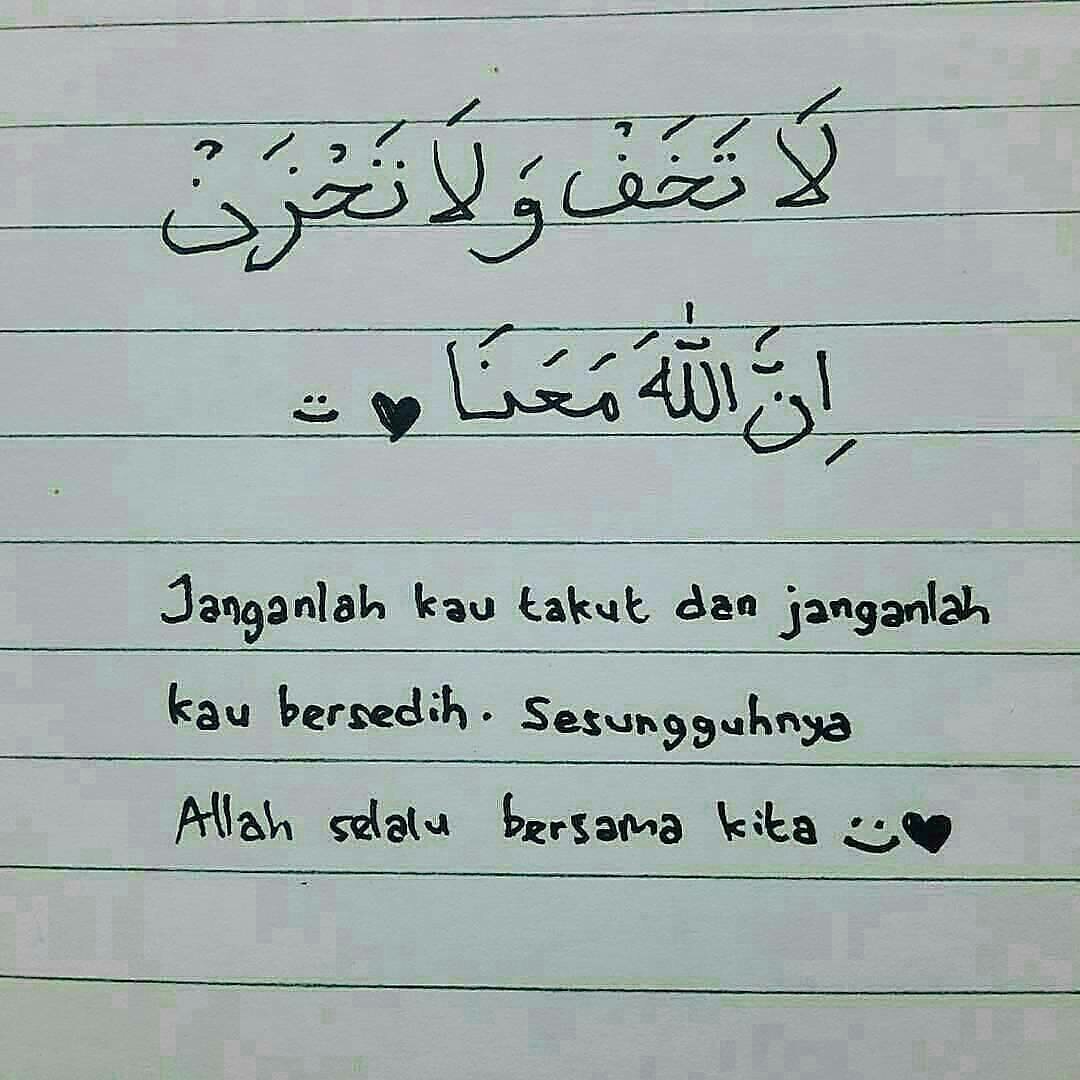 لَا تَخَفْ وَلَا تَحْزَنْ
اِنَّ اللّٰهَ مَعَنَا
Janganlah kau takut dan janganlah
kau bersedih. Sesungguhnya
Allah selalu bersama kita